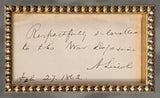 Respectfully submitted
to the War Department
A. Lincoln
Feb. 27. 1862